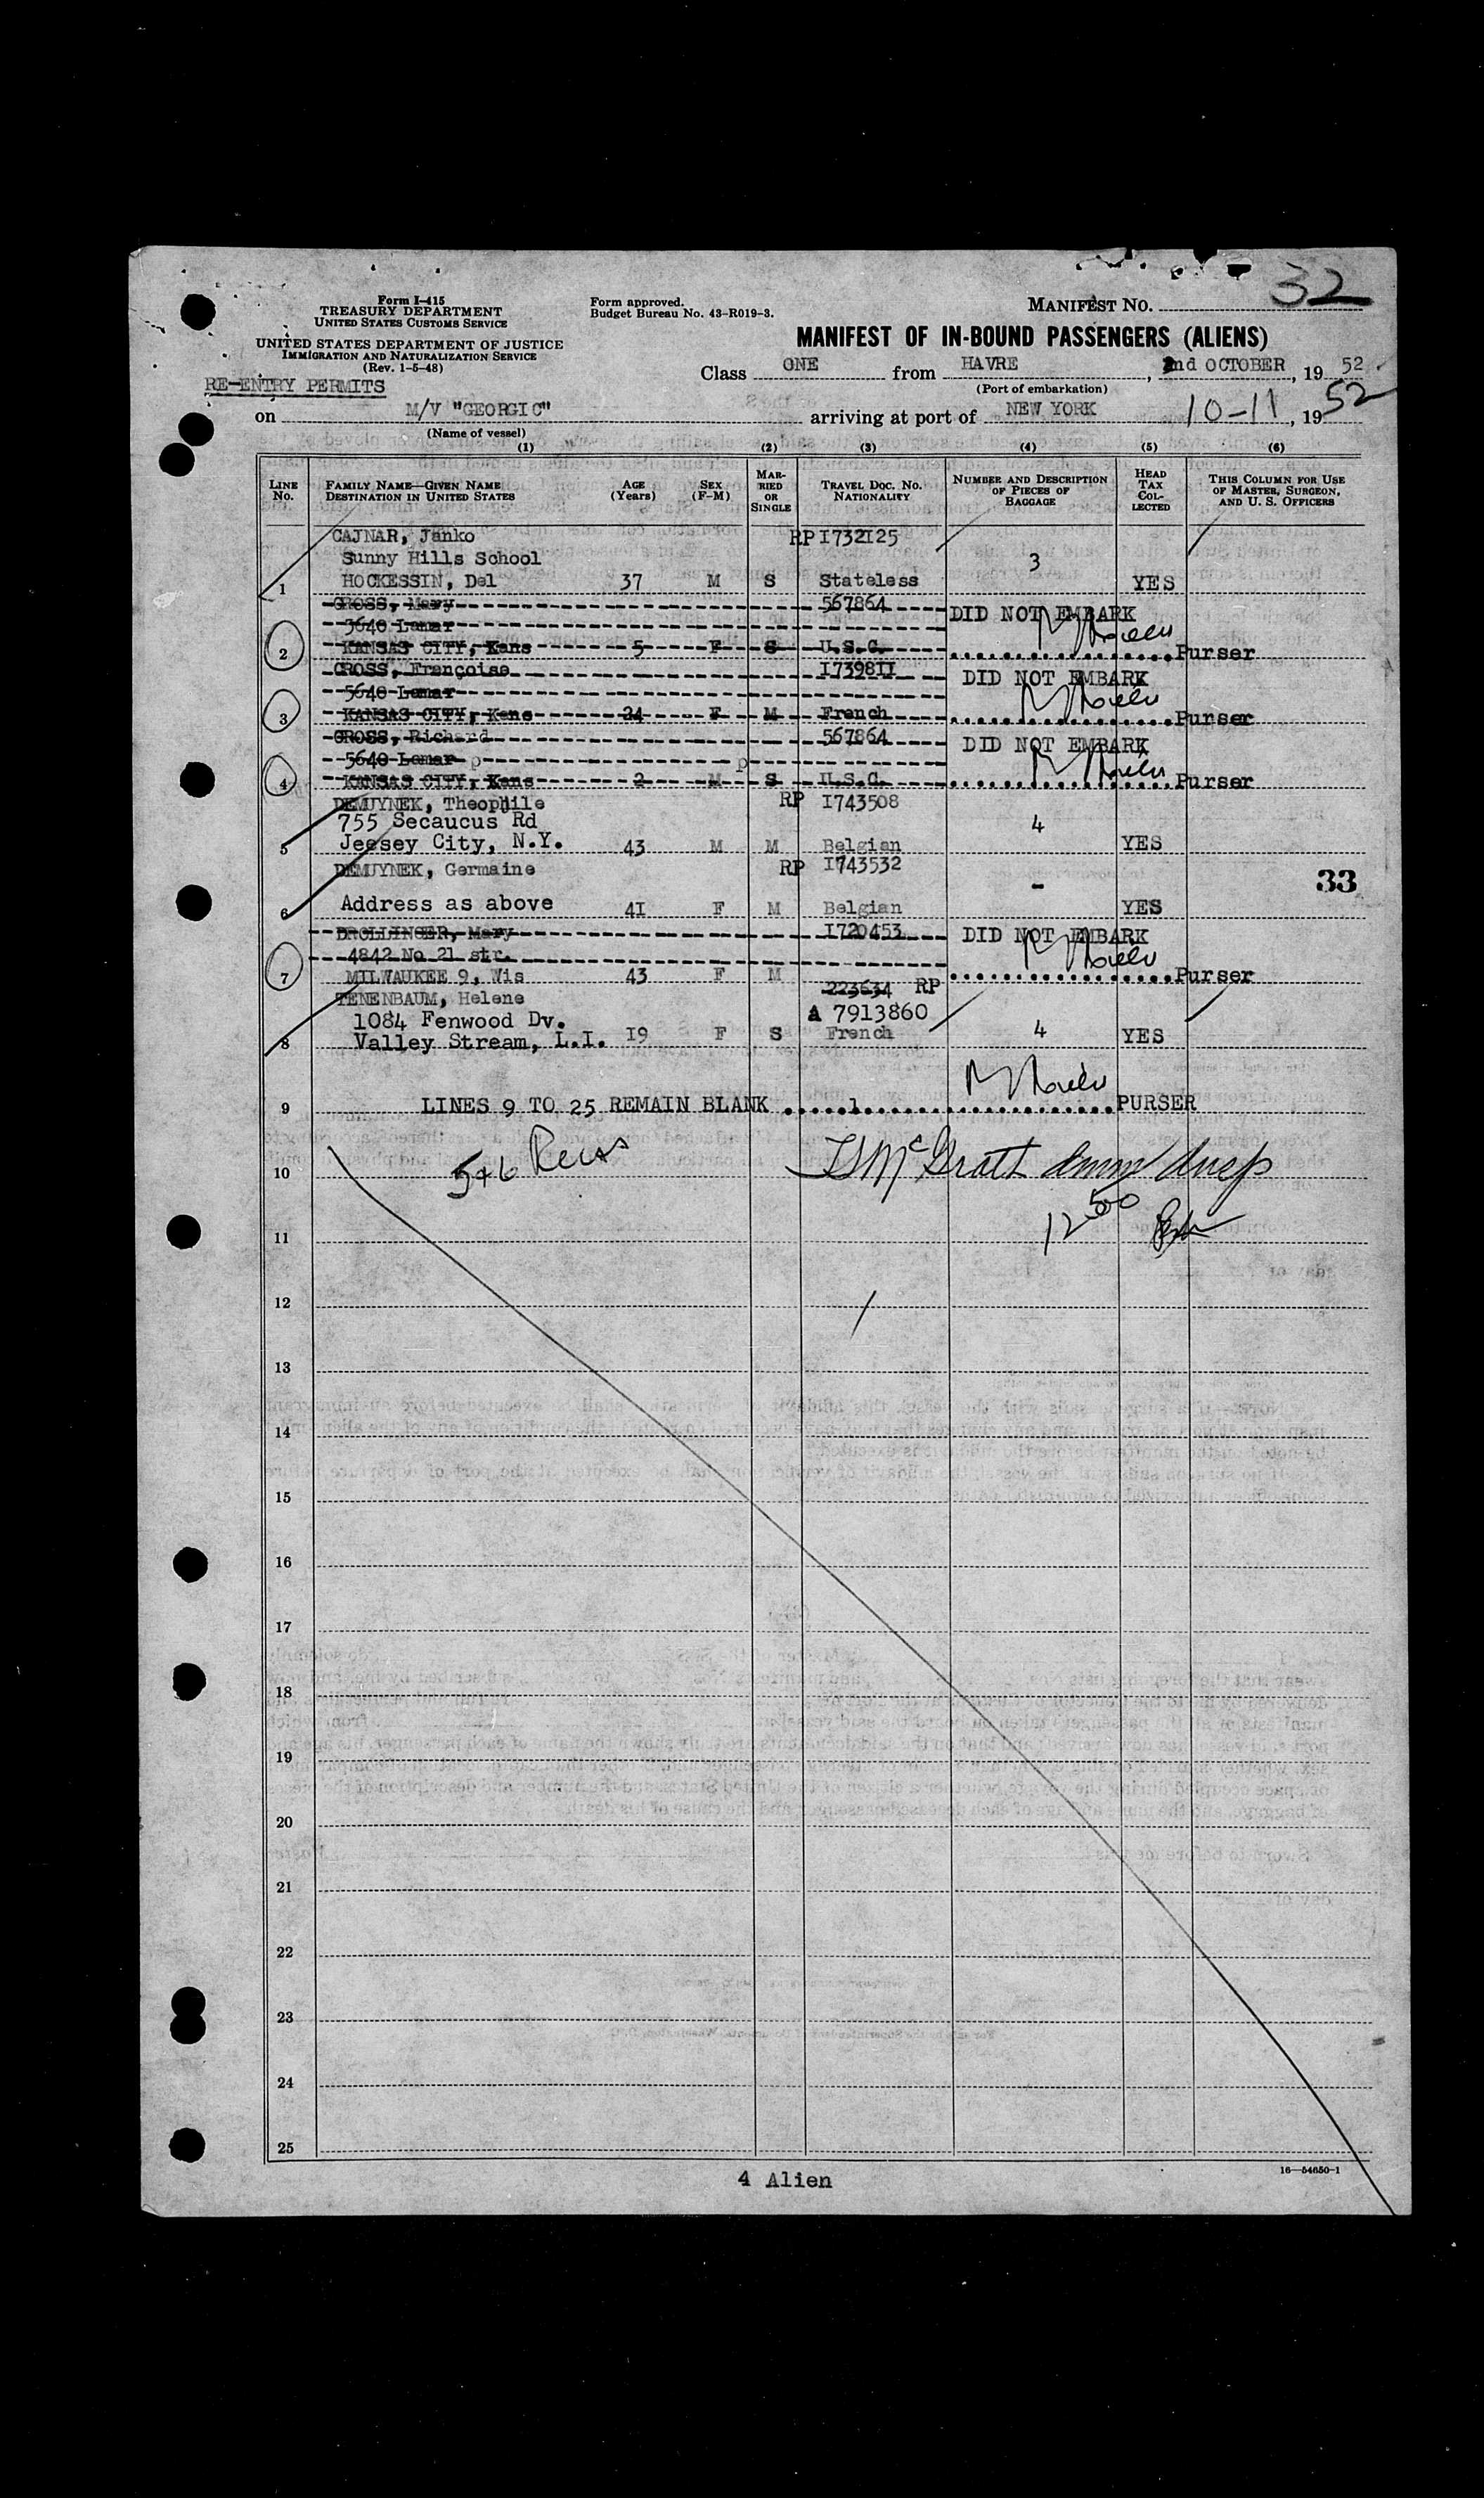 32
Form I-415
TREASURY DEPARTMENT
UNITED STATES CUSTOMS SERVICE
UNITED STATES DEPARTMENT OF JUSTICE
IMMIGRATION AND NATURALIZATION SERVICE
(Rev. 1-5-48)
RE-ENTRY PERMITS
Form approved.
Budget Bureau No. 43-R019-3.
MANIFEST NO.
MANIFEST OF IN-BOUND PASSENGERS (ALIENS)
Class ONE from HAVRE, 2nd OCTOBER, 1952
(Port of embarkation)
on M/V "GEORGIC" arriving at port of NEW YORK 10-11, 1952
(Name of vessel)
(1) (2) (3) (4) (5) (6)
LINE NO. FAMILY NAME—GIVEN NAME DESTINATION IN UNITED STATES AGE (Years) SEX (F-M) MARRIED OR SINGLE TRAVEL DOC. NO. NATIONALITY NUMBER AND DESCRIPTION OF PIECES OF BAGGAGE HEAD TAX COLLECTED THIS COLUMN FOR USE OF MASTER, SURGEON, AND U. S. OFFICERS
CAJNAR, Janko RP I732I25
Sunny Hills School 3
1 HOCKESSIN, Del 37 M S Stateless YES
GROSS, Mary 567864 DID NOT EMBARK
5640 Lamar
2 KANSAS CITY, Kans 5 F S U.S.C. Purser
GROSS, Françoise I7398II DID NOT EMBARK
5640 Lamar
3 KANSAS CITY, Kans 24 F M French Purser
GROSS, Richard 567864 DID NOT EMBARK
5640 Lamar p p
4 KANSAS CITY, Kans 2 M S U.S.C. Purser
DEMUYNEK, Theophile RP I743508
755 Secaucus Rd 4
5 Jeesey City, N.Y. 43 M M Belgian YES
DEMUYNEK, Germaine RP I743532
- 33
6 Address as above 4I F M Belgian YES
DROLLINGER, Mary I720453 DID NOT EMBARK
4842 No 21 str.
7 MILWAUKEE 9, Wis 43 F M Purser
TENENBAUM, Helene 223634 RP
1084 Fenwood Dv. A 7913860
8 Valley Stream, L.I. I9 F S French 4 YES
9 LINES 9 TO 25 REMAIN BLANK PURSER
10 5+6
11 12 50
12
13
14
15
16
17
18
19
20
21
22
23
24
25
4 Alien
16—54650-1